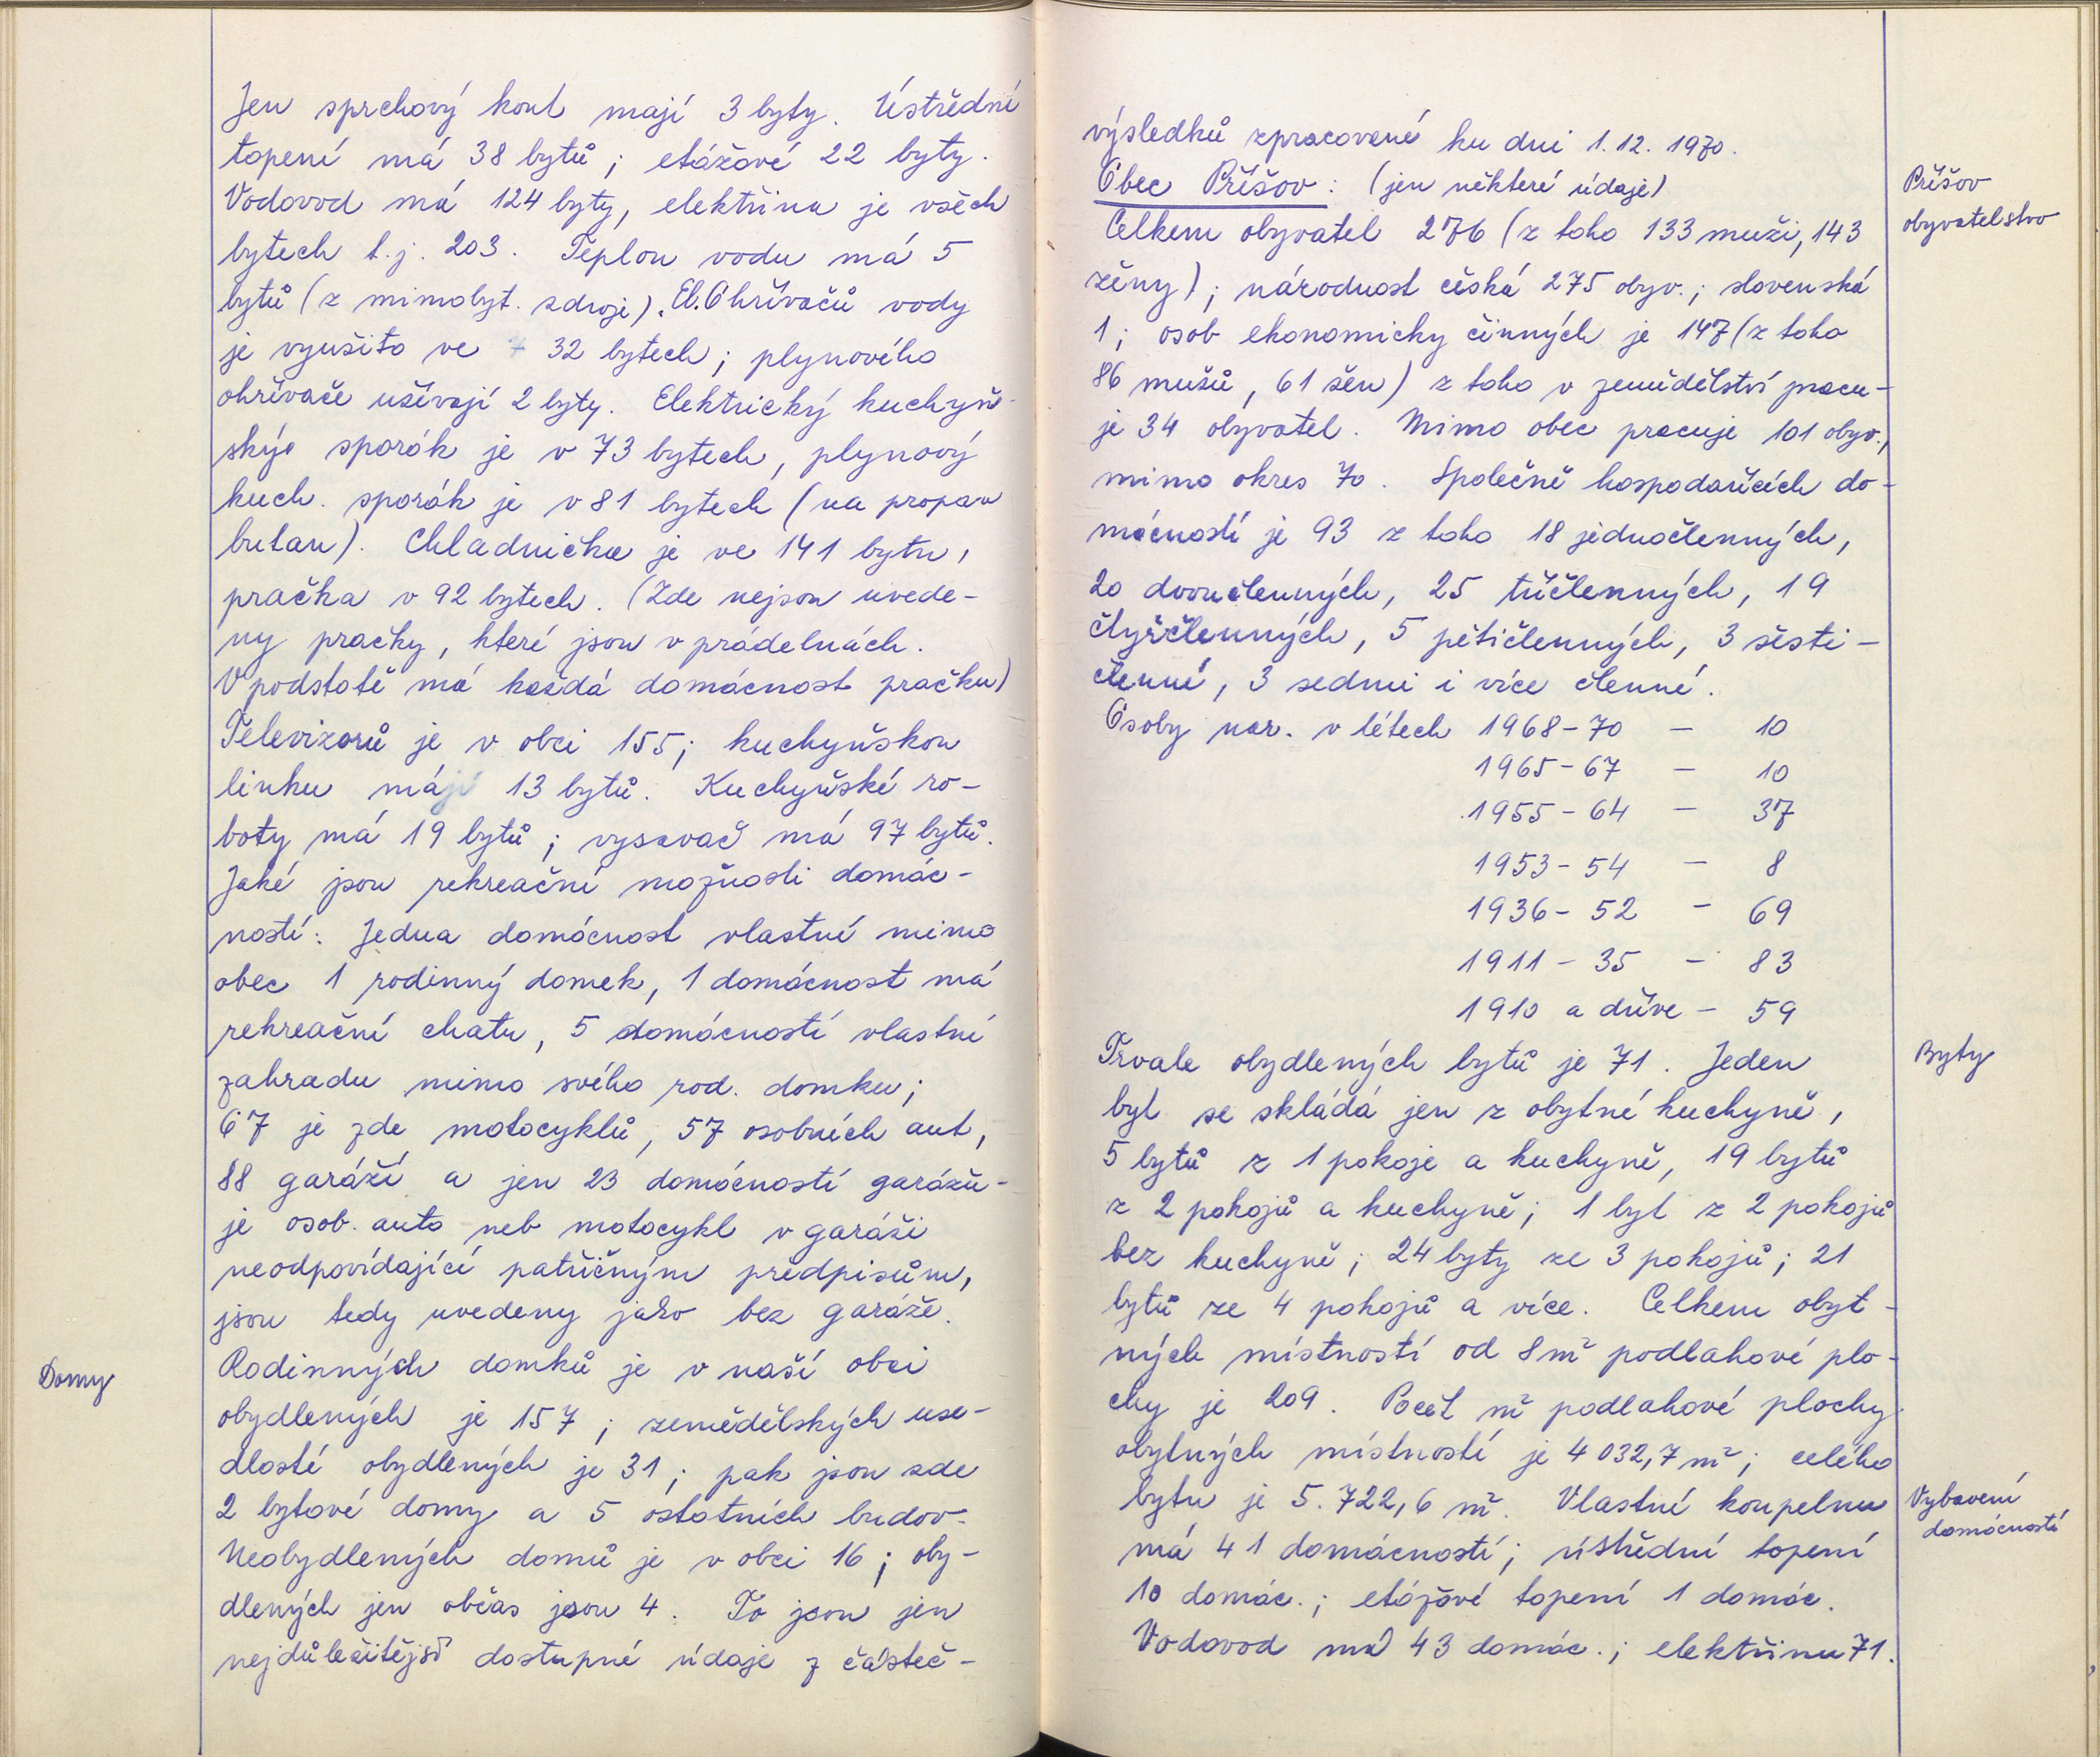 Jen sprchový kout mají 3 byty. Ústřední
topení má 38 bytů; etážové 22 byty.
Vodovod má 124 byty, elektřina je všech
bytech t.j. 203. Teplou vodu má 5
bytů (z mimobyt. zdroje). El. Ohřívačů vody
je využito ve 32 bytech; plynového
ohřívače užívají 2 byty. Elektrický kuchyň-
ský sporák je v 73 bytech, plynový
kuch. sporák je v 81 bytech (na propan
butan). Chladnička je ve 141 bytu,
pračka v 92 bytech. (Zde nejsou uvede-
ny pračky, které jsou v prádelnách.
V podstatě má každá domácnost pračku)
Televizorů je v obci 155; kuchyňskou
linku mají 13 bytů. Kuchyňské ro-
boty má 19 bytů; vysavač má 97 bytů.
Jaké jsou rekreační možnosti domác-
ností: Jedna domácnost vlastní mimo
obec 1 rodinný domek, 1 domácnost má
rekreační chatu, 5 domácností vlastní
zahradu mimo svého rod. domku;
67 je zde motocyklů, 57 osobních aut,
88 garáží a jen 23 domácností garážu-
je osob. auto neb motocykl v garáži
neodpovídající patřičným předpisům,
jsou tedy uvedeny jako bez garáže.
Domy
Rodinných domků je v naší obci
obydlených je 157; zemědělských use-
dlostí obydlených je 31; pak jsou zde
2 bytové domy a 5 ostatních budov.
Neobydlených domů je v obci 16; oby-
dlených jen občas jsou 4. To jsou jen
nejdůležitější dostupné údaje z částeč-
výsledků zpracované ku dni 1.12. 1970.
Obec Příšov: (jen některé údaje)
Příšov
obyvatelstvo
Celkem obyvatel 276 (z toho 133 muži, 143
ženy); národnost česká 275 obyv.; slovenská
1; osob ekonomicky činných je 147 (z toho
86 mužů, 61 žen) z toho v zemědělství pracu-
je 34 obyvatel. Mimo obec pracuje 101 obyv.,
mimo okres 70. Společně hospodařících do-
mácností je 93 z toho 18 jednočlenných,
20 dvoučlenných, 25 tříčlenných, 19
čtyřčlenných, 5 pětičlenných, 3 šesti-
členné, 3 sedmi i více členné.
Osoby nar. v létech 1968-70 - 10
1965-67 - 10
1955-64 - 37
1953-54 - 8
1936-52 - 69
1911-35 - 83
1910 a dříve - 59
Byty
Trvale obydlených bytů je 71. Jeden
byt se skládá jen z obytné kuchyně,
5 bytů z 1 pokoje a kuchyně, 19 bytů
z 2 pokojů a kuchyně; 1 byt z 2 pokojů
bez kuchyně; 24 byty ze 3 pokojů; 21
bytů ze 4 pokojů a více. Celkem obyt-
ných místností od 8 m² podlahové plo-
chy je 209. Počet m² podlahové plochy
obytných místností je 4 032,7 m²; celého
bytu je 5.722,6 m². Vlastní koupelnu
Vybavení
domácností
má 41 domácností; ústřední topení
10 domác.; etážové topení 1 domác.
Vodovod má 43 domác.; elektřinu 71.